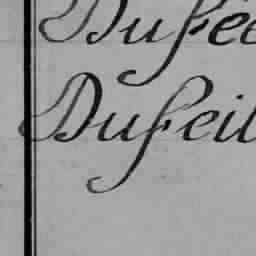 Dufée
Dufeil